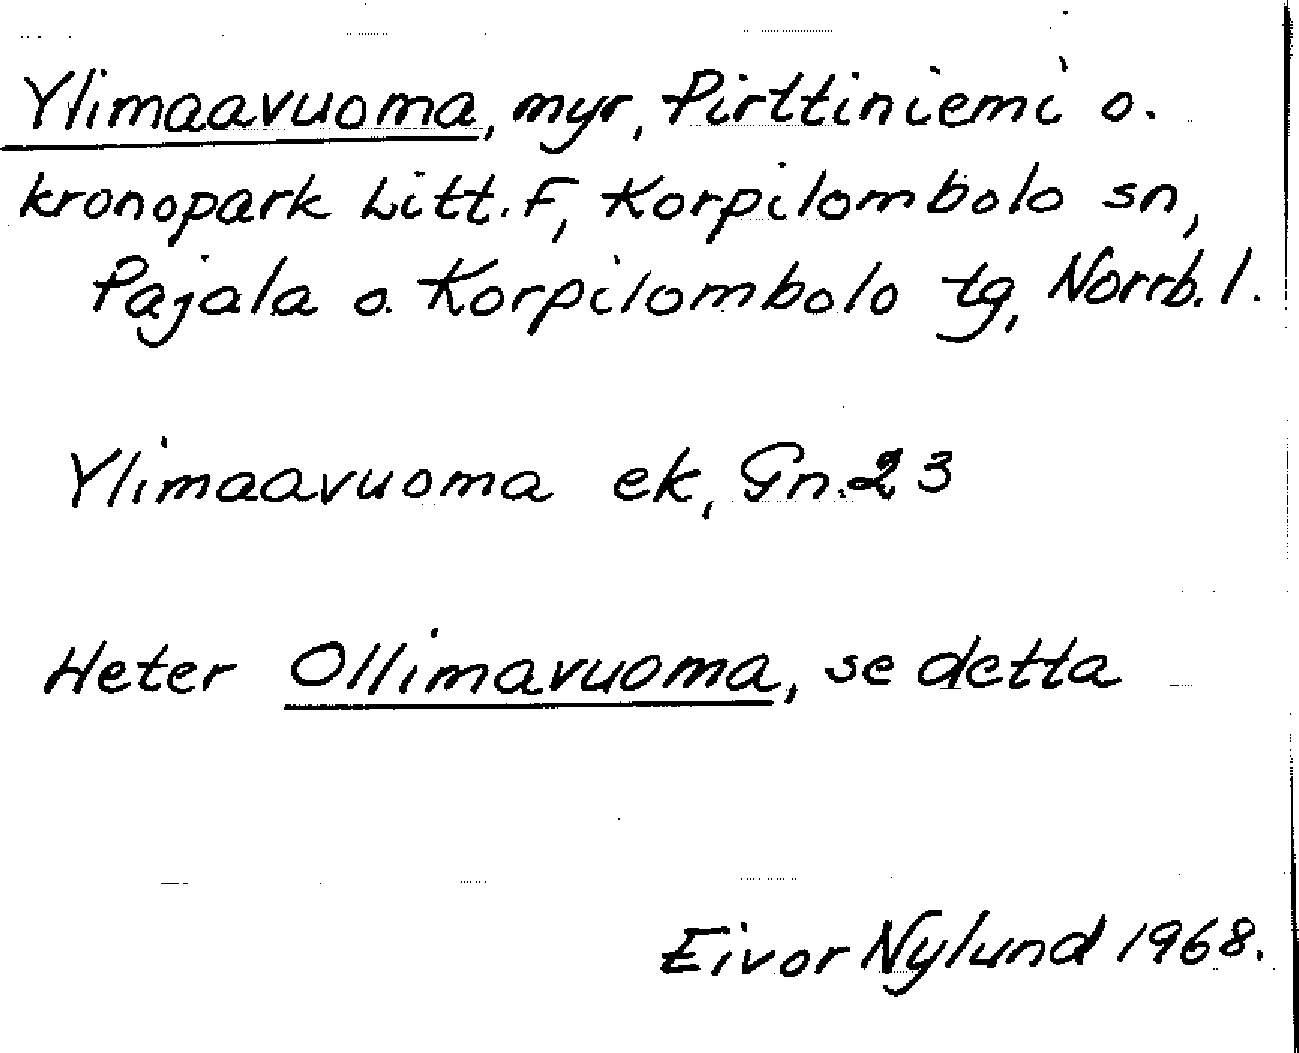 Ylimaavuoma, myr, Pirttiniemi o.
kronopark Litt. F, Korpilombolo sn,
Pajala o. Korpilombolo tg, Norrb. l.
Ylimaavuoma ek, Gn. 23
Heter Ollimavuoma, se detta
Eivor Nylund 1968.